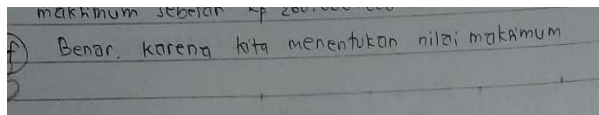 makhimum sebesar Rp 200.000.000
f) Benar, karena kita menentukan nilai makhimum